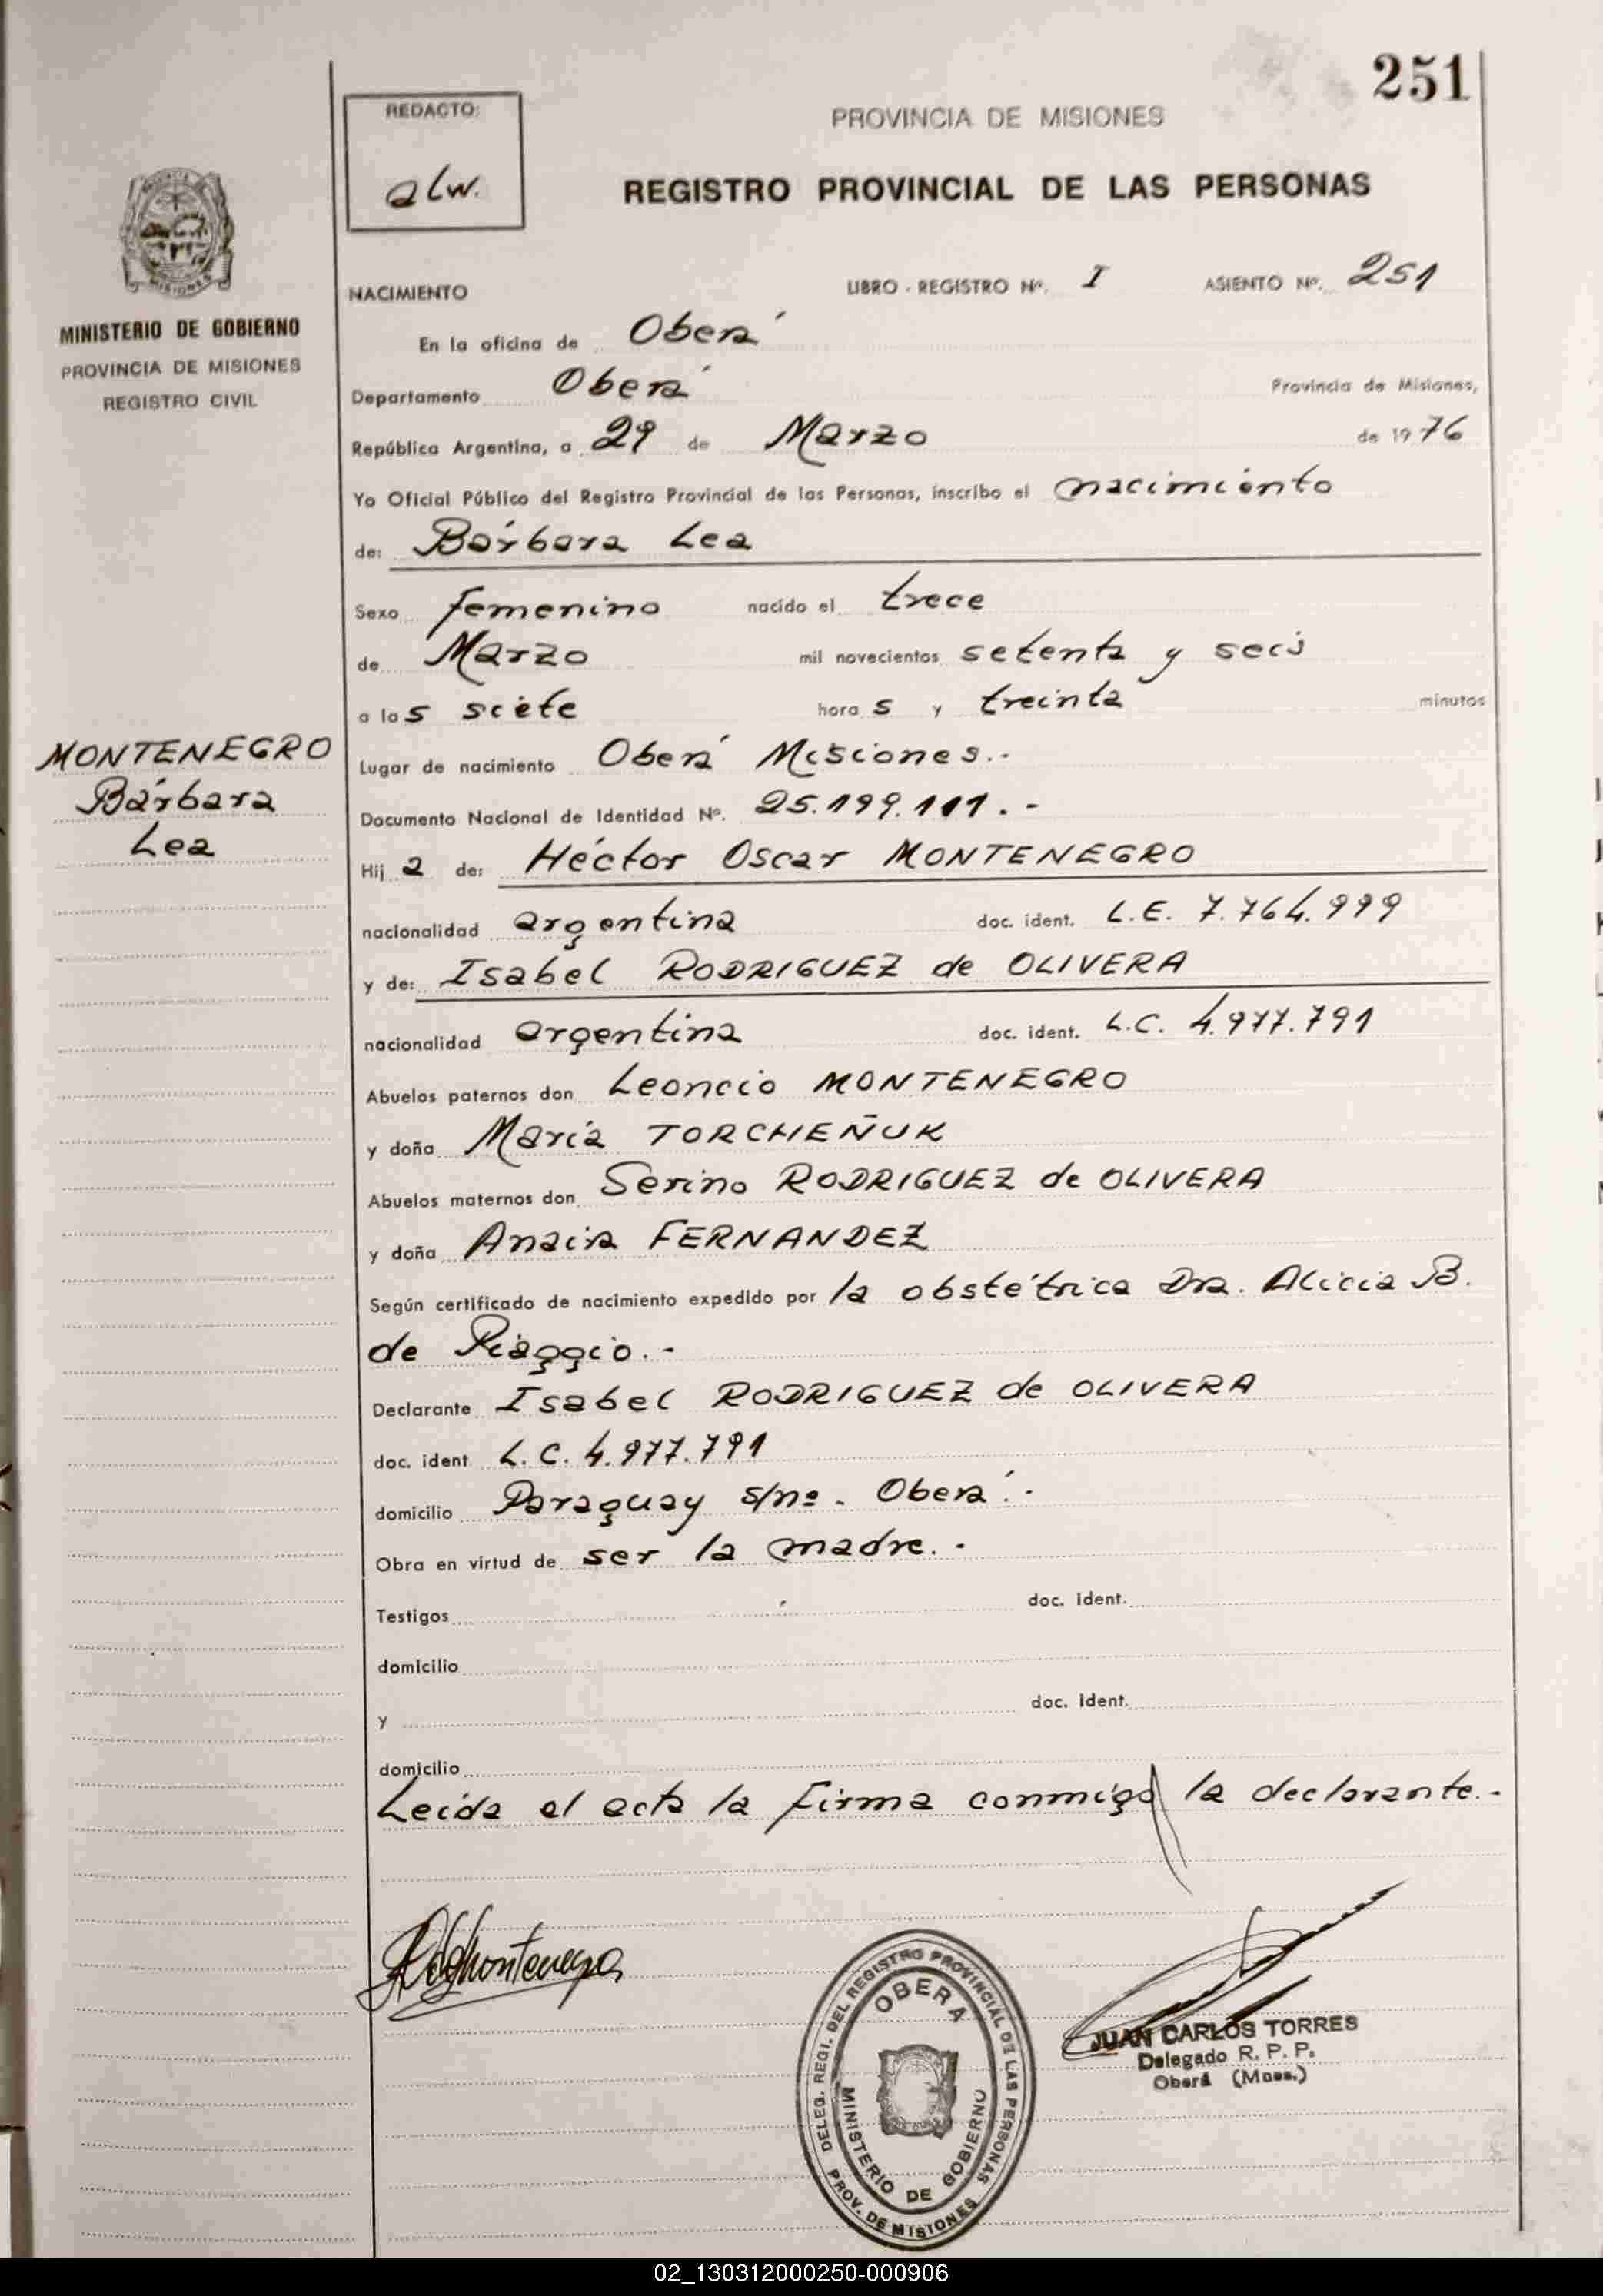 251
REDACTO:
alw.
PROVINCIA DE MISIONES
REGISTRO PROVINCIAL DE LAS PERSONAS
MINISTERIO DE GOBIERNO
PROVINCIA DE MISIONES
REGISTRO CIVIL
NACIMIENTO LIBRO - REGISTRO Nº. I ASIENTO Nº. 251
En la oficina de Oberá
Departamento Oberá Provincia de Misiones,
República Argentina, a 29 de Marzo de 1976
Yo Oficial Público del Registro Provincial de las Personas, inscribo el nacimiento
de: Bárbara Lea
Sexo femenino nacido el trece
de Marzo mil novecientos setenta y seis
a las siete horas y treinta minutos
MONTENEGRO
Bárbara
Lea
Lugar de nacimiento Oberá Misiones.-
Documento Nacional de Identidad Nº. 25.199.111.-
Hija de: Héctor Oscar MONTENEGRO
nacionalidad argentina doc. ident. L.E. 7.764.999
y de: Isabel RODRIGUEZ de OLIVERA
nacionalidad argentina doc. ident. L.C. 4.977.791
Abuelos paternos don Leoncio MONTENEGRO
y doña María TORCHEÑUK
Abuelos maternos don Serino RODRIGUEZ de OLIVERA
y doña FERNANDEZ
Según certificado de nacimiento expedido por la obstétrica Dra. Alicia B.
de Piaggio.-
Declarante Isabel RODRIGUEZ de OLIVERA
doc. ident L.C. 4.977.791
domicilio Paraguay s/nº. Oberá.-
Obra en virtud de ser la madre.-
Testigos doc. ident.
domicilio
y doc. ident.
domicilio
Leída el acta la firma conmigo la declarante.-
DELEG. REGI. DEL REGISTRO PROVINCIAL DE LAS PERSONAS
OBERA
MINISTERIO DE GOBIERNO
PROV. DE MISIONES
JUAN CARLOS TORRES
Delegado R. P. P.
Oberá (Mnes.)
02_130312000250-000906